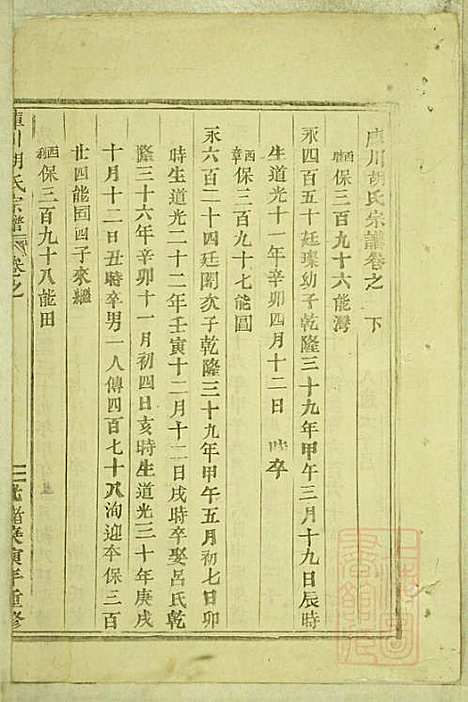 庫川胡氏宗譜卷之 下
酉翰保三百九十六能灣
永四百五十廷璨幼子乾隆三十九年甲午三月十九日辰時
生道光十一年辛卯四月十二日 時卒
酉章保三百九十七能圓
永六百二十四廷閣次子乾隆三十九年甲午五月初七日卯
時生道光二十二年壬寅十二月十二日戌時卒娶呂氏乾
隆三十六年辛卯十一月初四日亥時生道光三十年庚戌
十月十二日丑時卒男一人傳四百七十八洵迎本保三百
廿四能固四子來繼
酉保三百九十八能田
庫川胡氏宗譜 卷之 光緒庚寅年重修